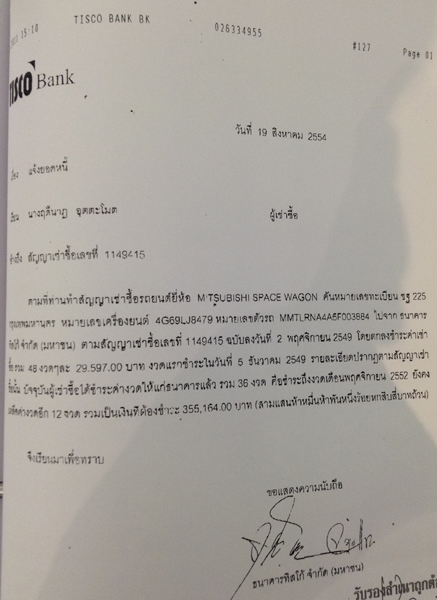 15:10 TISCO BANK BK 026334955 #127 Page 01
TISCO Bank
วันที่ 19 สิงหาคม 2554
เรื่อง แจ้งยอดหนี้
เรียน นางฤดีนาฏ อุตตะโมต ผู้เช่าซื้อ
อ้างถึง สัญญาเช่าซื้อเลขที่ 1149415
ตามที่ท่านทำสัญญาเช่าซื้อรถยนต์ยี่ห้อ MITSUBISHI SPACE WAGON คันหมายเลขทะเบียน ชฐ 225
กรุงเทพมหานคร หมายเลขเครื่องยนต์ 4G69LJ8479 หมายเลขตัวรถ MMTLRNA4A5F003884 ไปจาก ธนาคาร
ทิสโก้ จำกัด (มหาชน) ตามสัญญาเช่าซื้อเลขที่ 1149415 ฉบับลงวันที่ 2 พฤศจิกายน 2549 โดยตกลงชำระค่าเช่า
ซื้อ รวม 48 งวดๆละ 29,597.00 บาท งวดแรกชำระในวันที่ 5 ธันวาคม 2549 รายละเอียดปรากฏตามสัญญาเช่า
ซื้อนั้น ปัจจุบันผู้เช่าซื้อได้ชำระค่างวดให้แก่ธนาคารแล้ว รวม 36 งวด คือชำระถึงงวดเดือนพฤศจิกายน 2552 ยังคง
เหลือค่างวดอีก 12 งวด รวมเป็นเงินที่ต้องชำระ 355,164.00 บาท (สามแสนห้าหมื่นห้าพันหนึ่งร้อยหกสิบสี่บาทถ้วน)
จึงเรียนมาเพื่อทราบ
ขอแสดงความนับถือ
ธนาคารทิสโก้ จำกัด (มหาชน)
รับรองสำเนาถูกต้